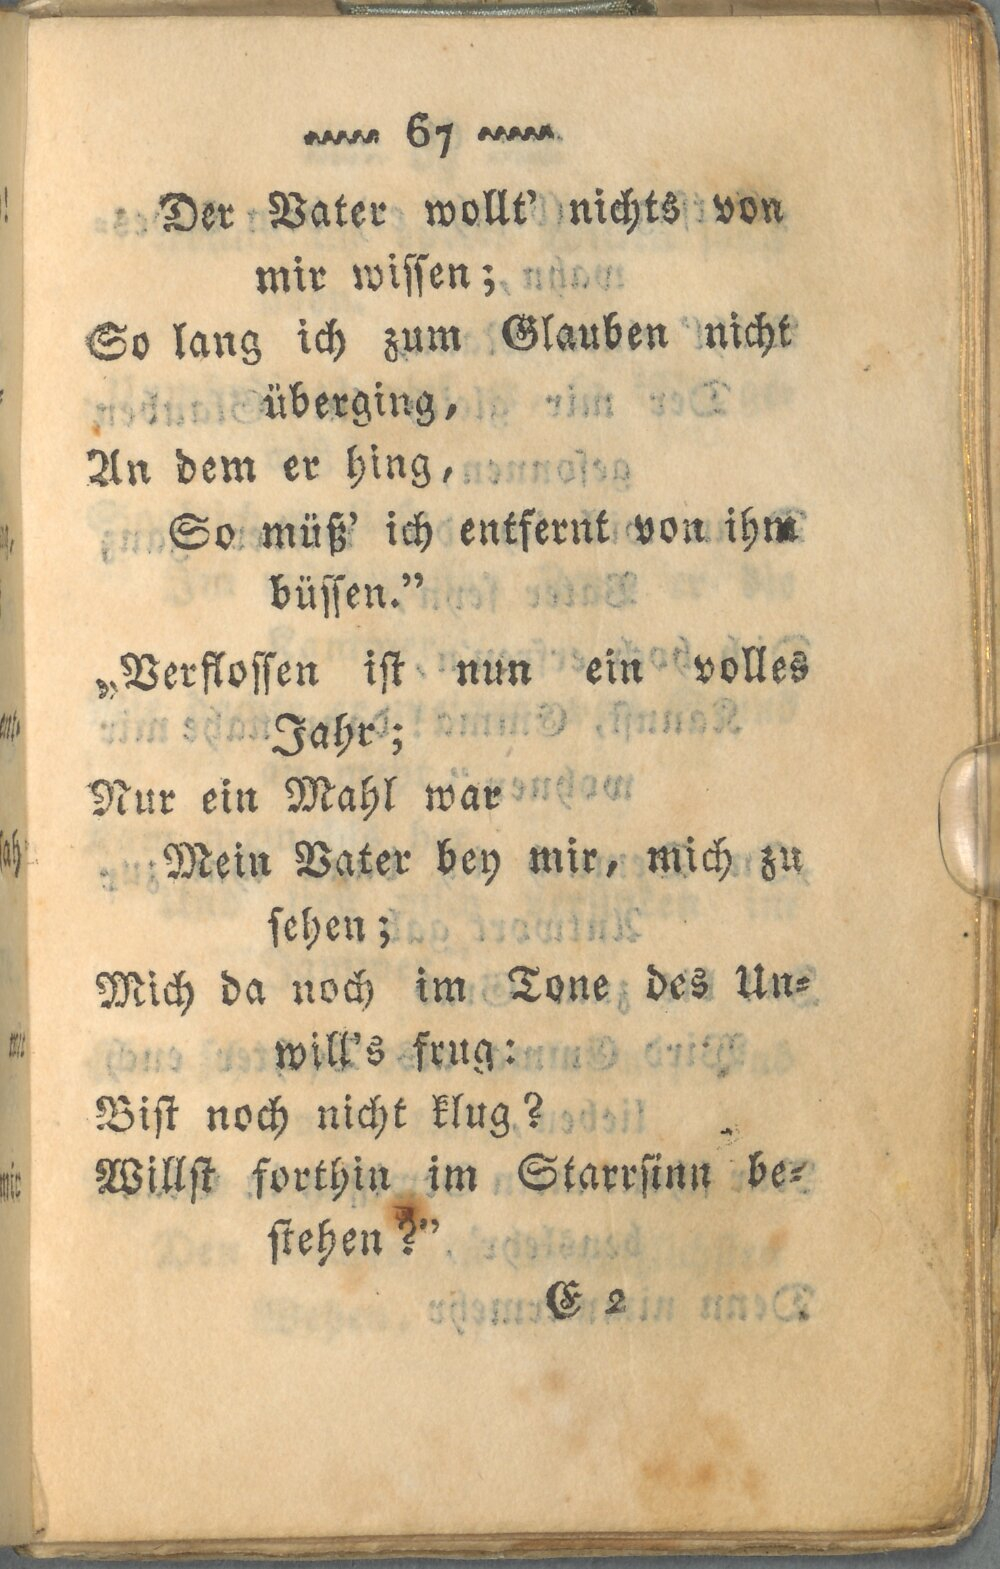 67
Der Vater wollt' nichts von
mir wissen;
So lang ich zum Glauben nicht
überging,
An dem er hing,
So müß' ich entfernt von ihm
büssen.”
„Verflossen ist nun ein volles
Jahr;
Nur ein Mahl war
Mein Vater bey mir, mich zu
sehen;
Mich da noch im Tone des Un-
will's frug:
Bist noch nicht klug?
Willst forthin im Starrsinn be-
stehen?”
E 2